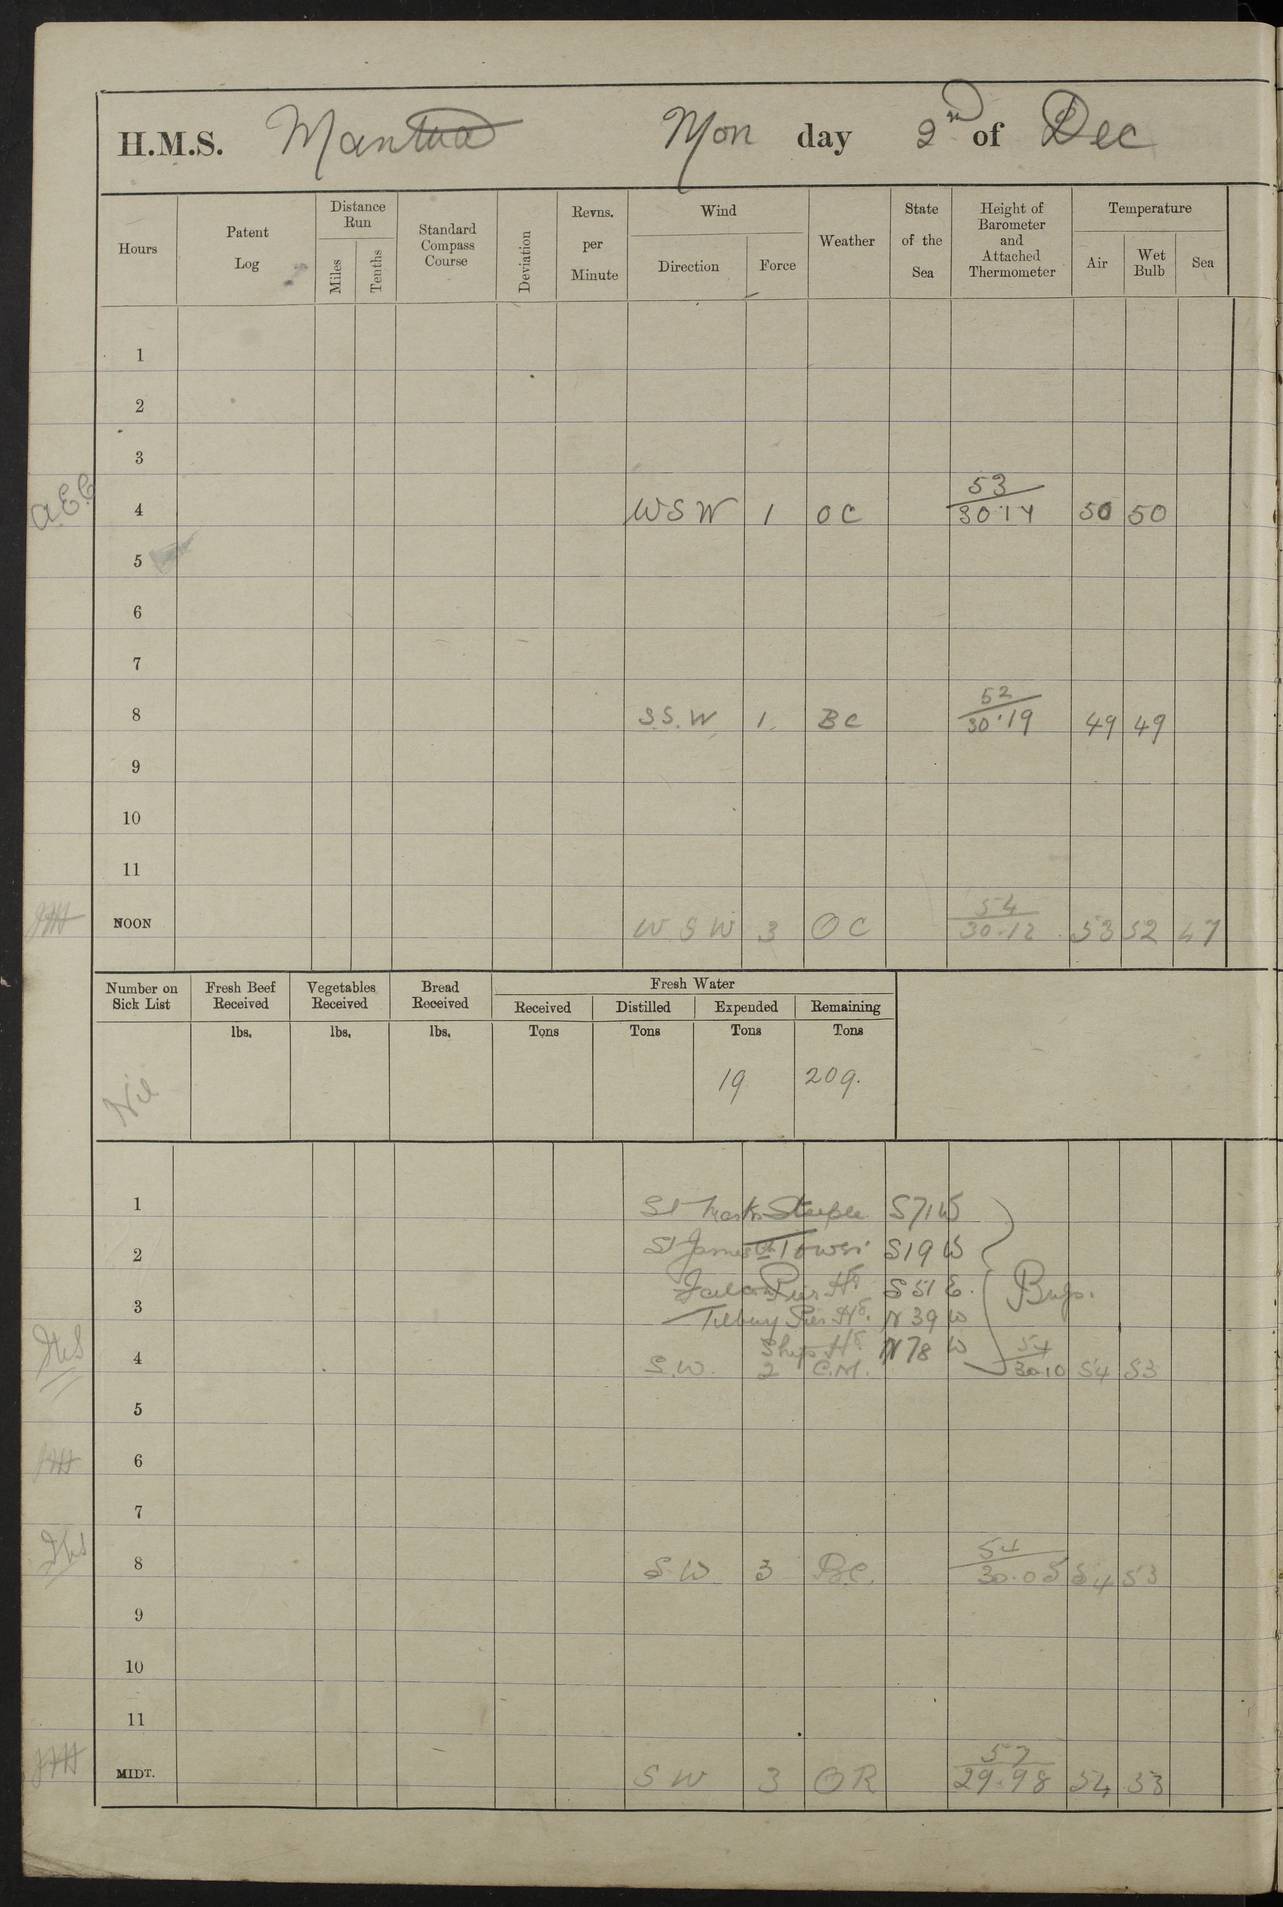 H.M.S. Mantua Mon day 2nd of Dec
Hours Patent Log Distance Run Miles Tenths Standard Compass Course Deviation Revns. per Minute Wind Direction Force Weather State of the Sea Height of Barometer and Attached Thermometer Temperature Air Wet Bulb Sea
1
2
3
53
4 WSW 1 OC 30.14 50 50
5
6
7
52
8 S.S.W 1. BC 30.19 49 49
9
10
11
54
NOON WSW 3 OC 30.12 53 52 47
Number on Sick List Fresh Beef Received Vegetables Received Bread Received Fresh Water
Received Distilled Expended Remaining
lbs. lbs. lbs. Tons Tons Tons Tons
Nil 19 209.
1 St Marks Steeple S71W
2 St James Ch Tower S19W
Falcon Pier Hd S51E.
3 Tilbury Pier Hd. N39W
Ships Hd N78W
54
4 S.W. 2 C.M. 30.10 54 53
5
6
7
54
8 SW 3 BC. 30.05 54 53
9
10
11
57
MIDT. SW 3 OR 29.98 54 53